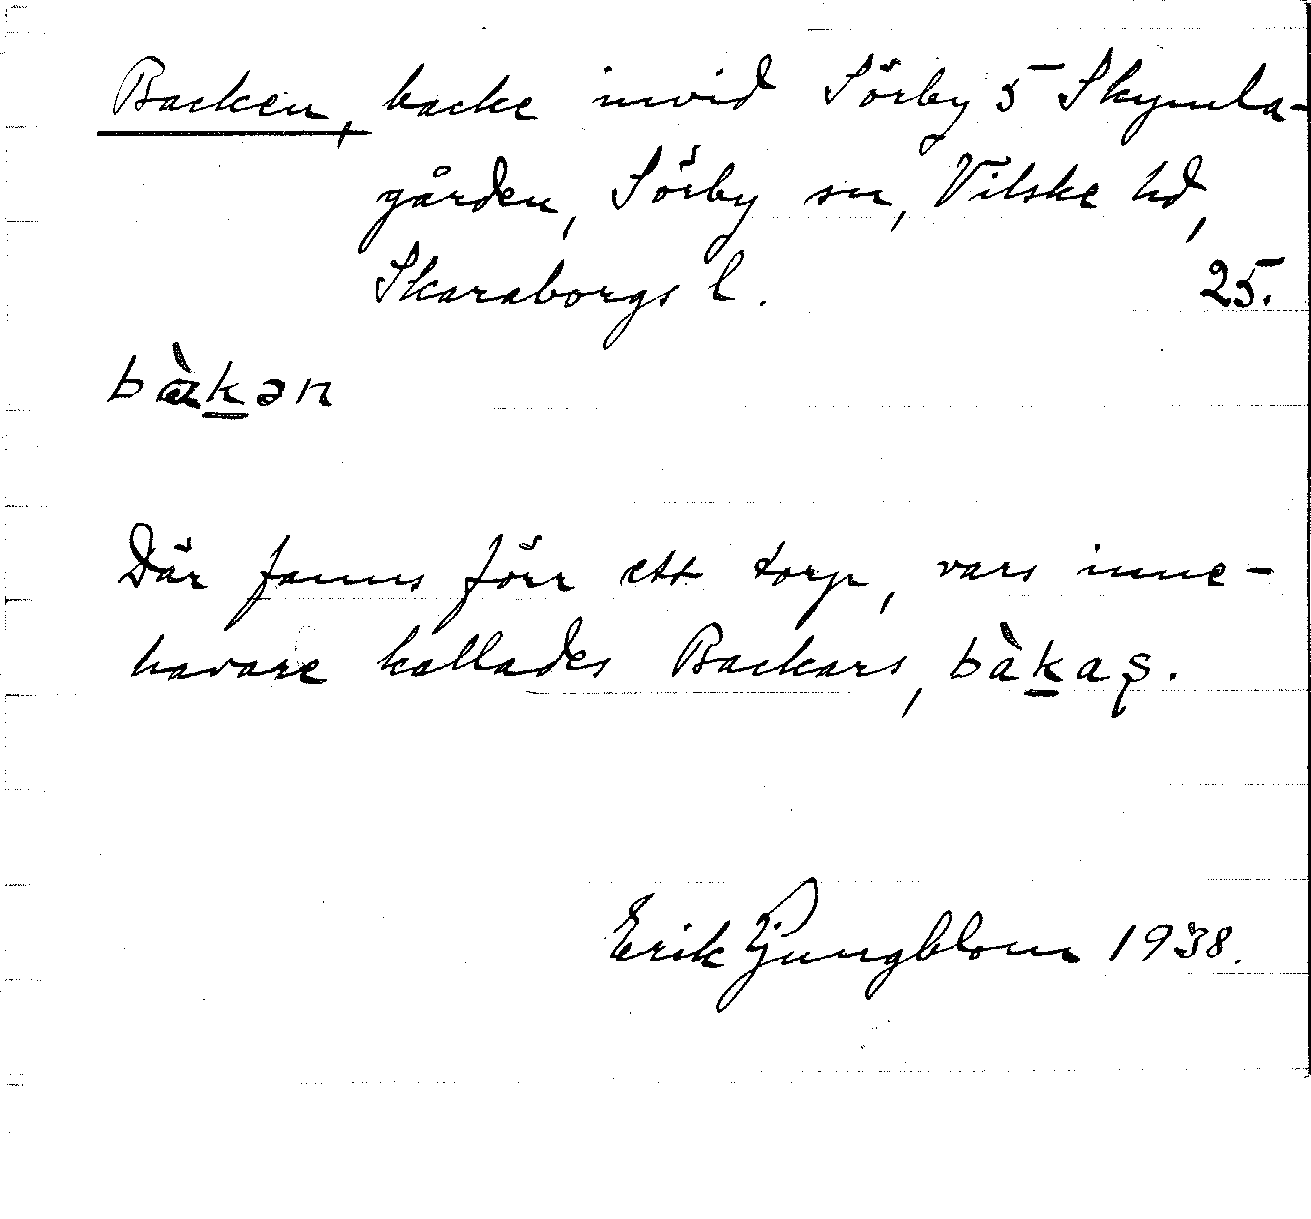 Backen, backe invid Sörby 5 Skymla-
gården, Sörby sn, Vilske hd,
Skaraborgs l. 25.
bàk̲ən
Där fanns förr ett torp, vars inne-
havare kallades Backars, bàk̲aş.
Erik Ljungblom 1938.